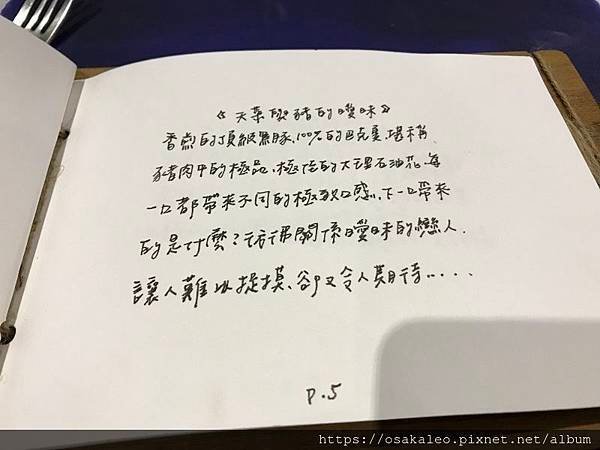 《天菜殿豬的曖昧》
香煎的頂級黑豚.100%的巴克夏.堪稱
豬肉中的極品.極佳的大理石油花.每
一口都帶來不同的極致口感.下一口帶來
的是什麼?彷彿關係曖昧的戀人.
讓人難以捉摸、卻又令人期待.....
P.5
https://osakaleo.pixnet.net/album